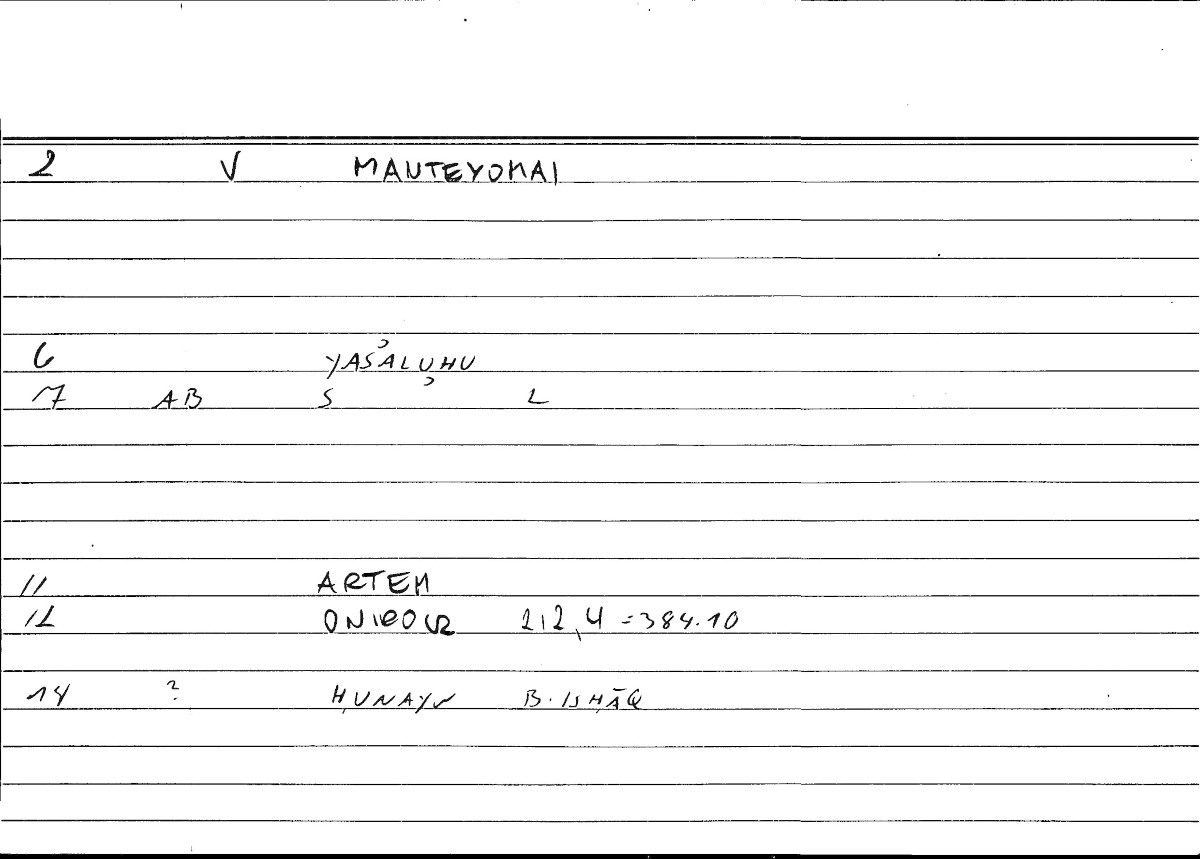 2 V MANTEYOMAI
6 YASʾALUHU
17 AB S L
11 ARTEM
12 ONIROCR 212,4 = 384.10
14 ? ḤUNAYN B. ISḤĀQ